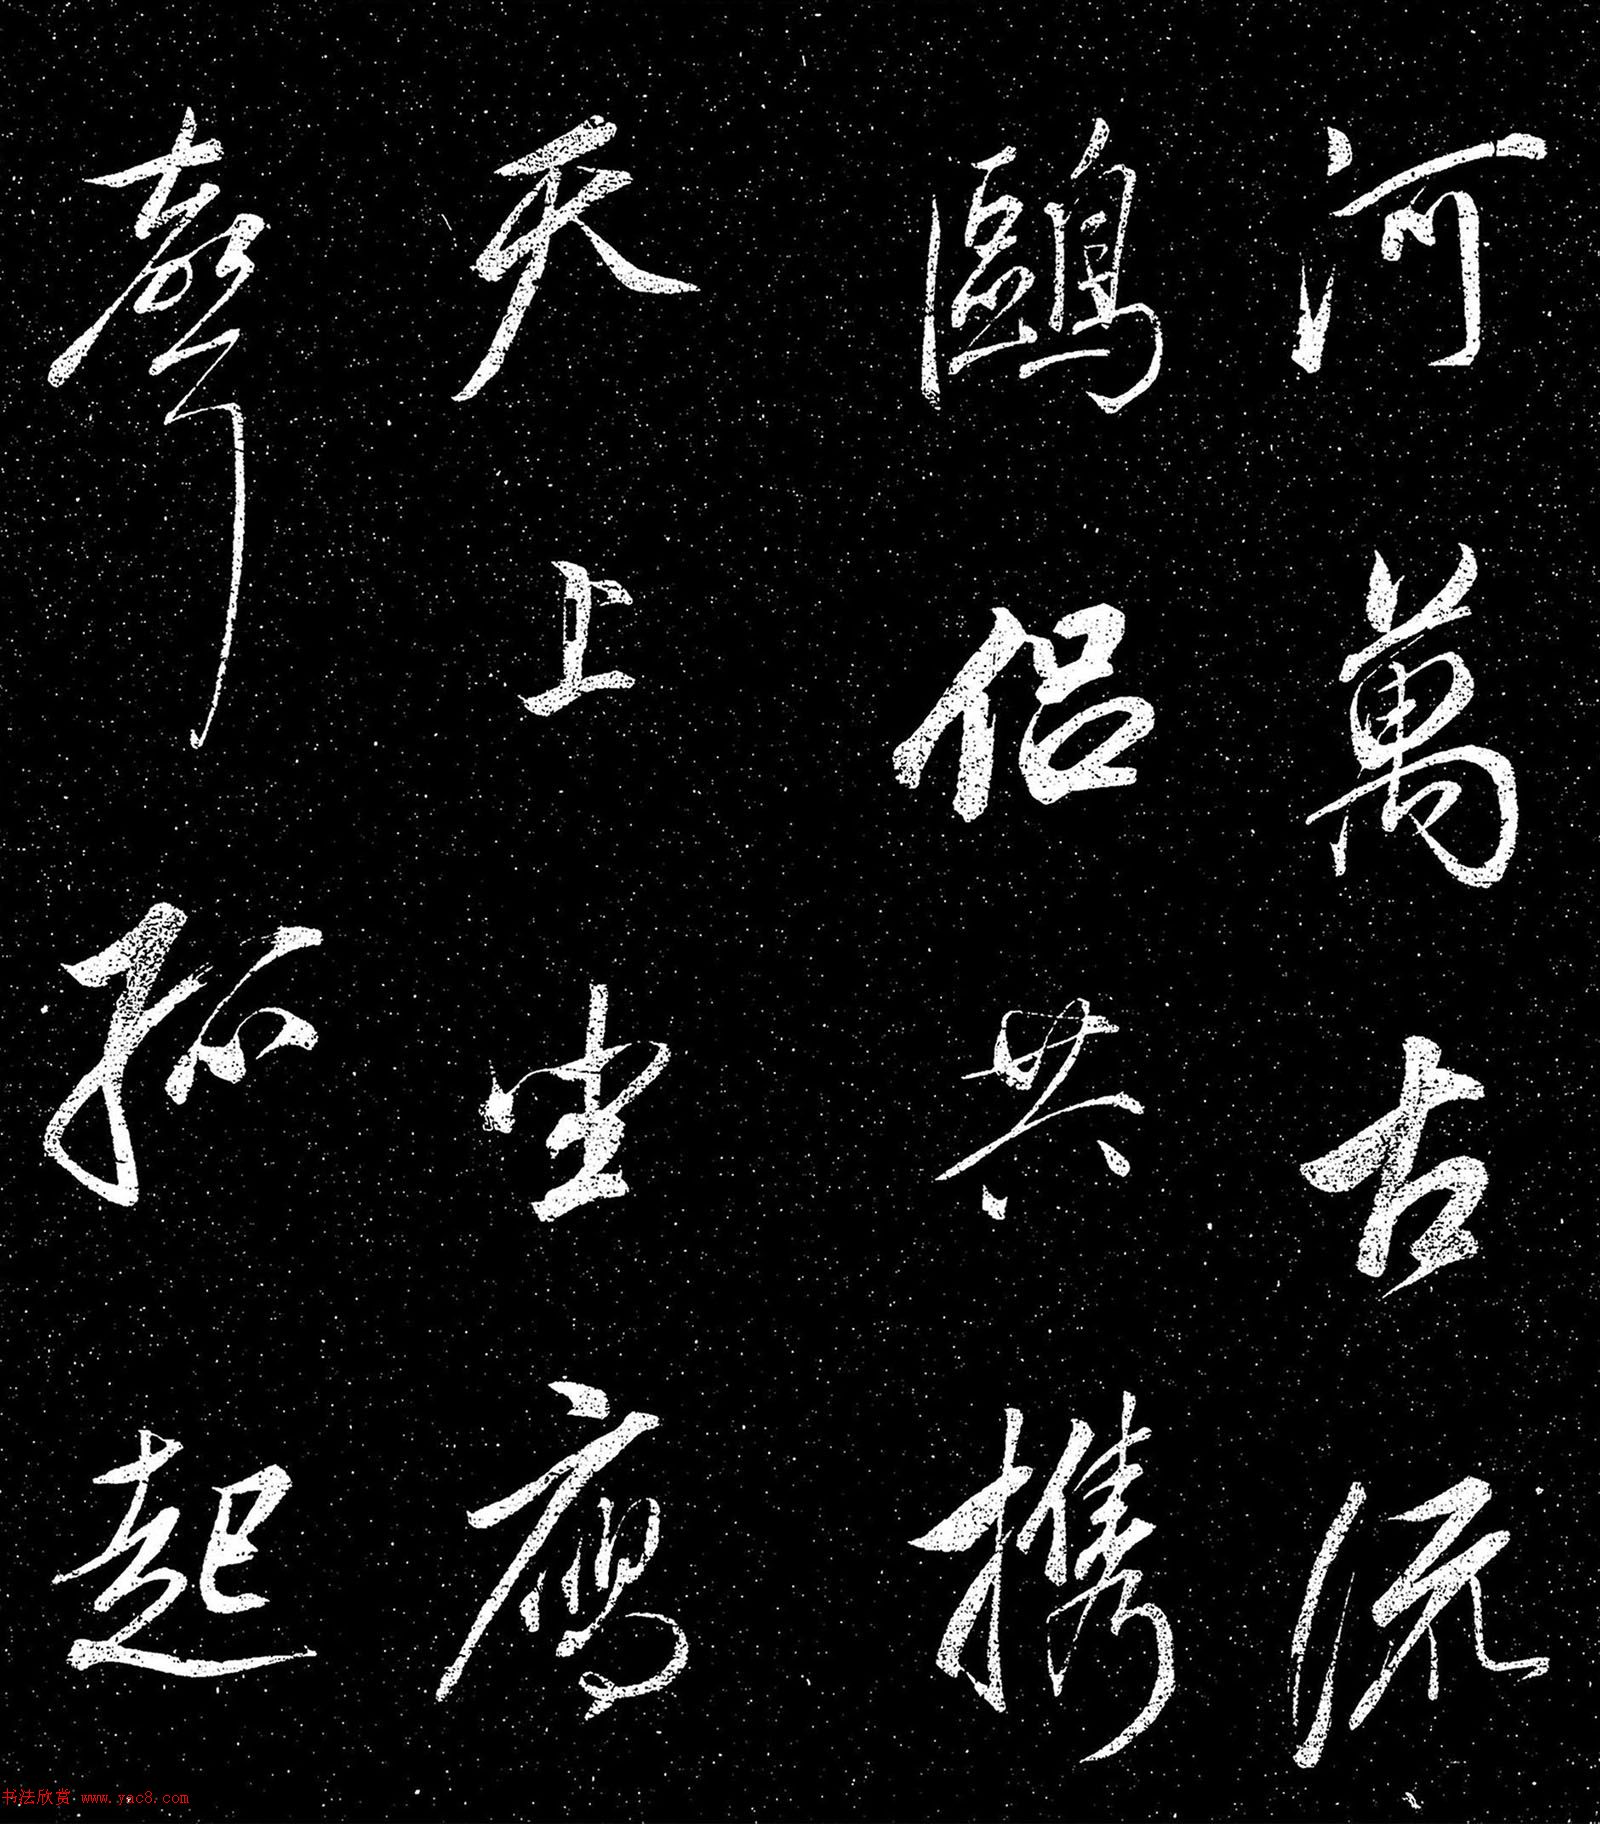 河萬古流
鷗侶共携
天上坐鴈
聲孤起
书法欣赏 www.yac8.com